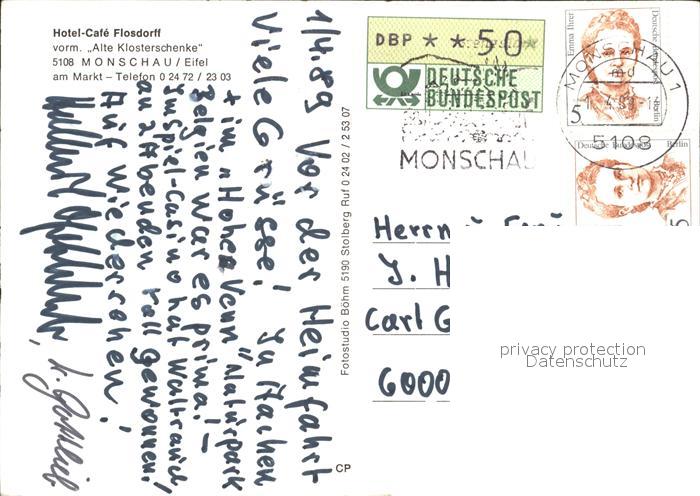 Hotel-Café Flosdorff
vorm. „Alte Klosterschenke"
5108 MONSCHAU / Eifel
am Markt – Telefon 0 24 72 / 23 03
1/4.89 Vor der Heimfahrt
Viele Grüsse! In Aachen
+ im „Hohen Venn" Naturpark
Belgien war es prima! –
Im Spiel-Casino hat Waltraud
an 2 Abenden toll gewonnen!
Auf Wiedersehen!
Fotostudio Böhm 5190 Stolberg Ruf 0 24 02 / 2 53 07
CP
DBP * * 50
DEUTSCHE
BUNDESPOST
MONSCHAU
Emma Ihrer
Deutsche Bundespost Berlin
5
MONSCHAU 1
5108
Deutsche Bundespost Berlin
5
Herrn
J. H
Carl G
6000
privacy protection
Datenschutz